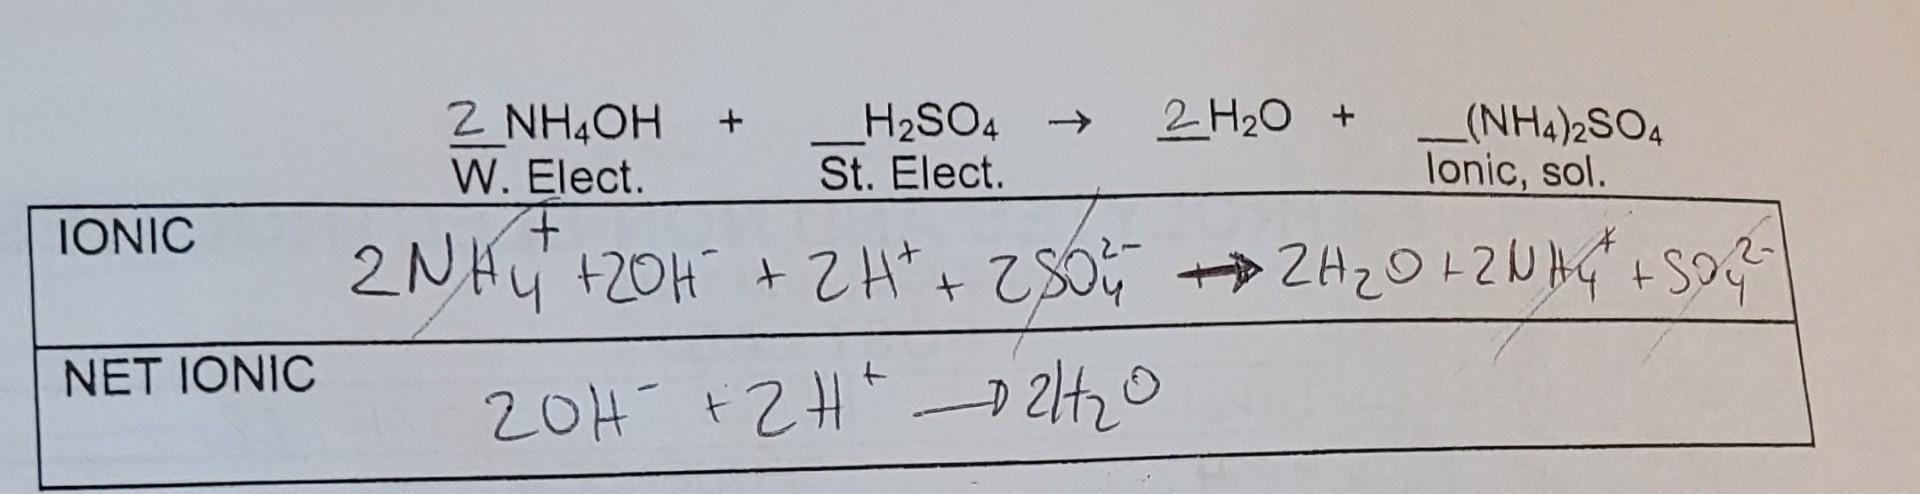 2 NH₄OH + __H₂SO₄ → 2 H₂O + __(NH₄)₂SO₄
W. Elect. St. Elect. Ionic, sol.
IONIC 2NH₄⁺ + 2OH⁻ + 2H⁺ + 2SO₄²⁻ → 2H₂O + 2NH₄⁺ + SO₄²⁻
NET IONIC 2OH⁻ + 2H⁺ → 2H₂O